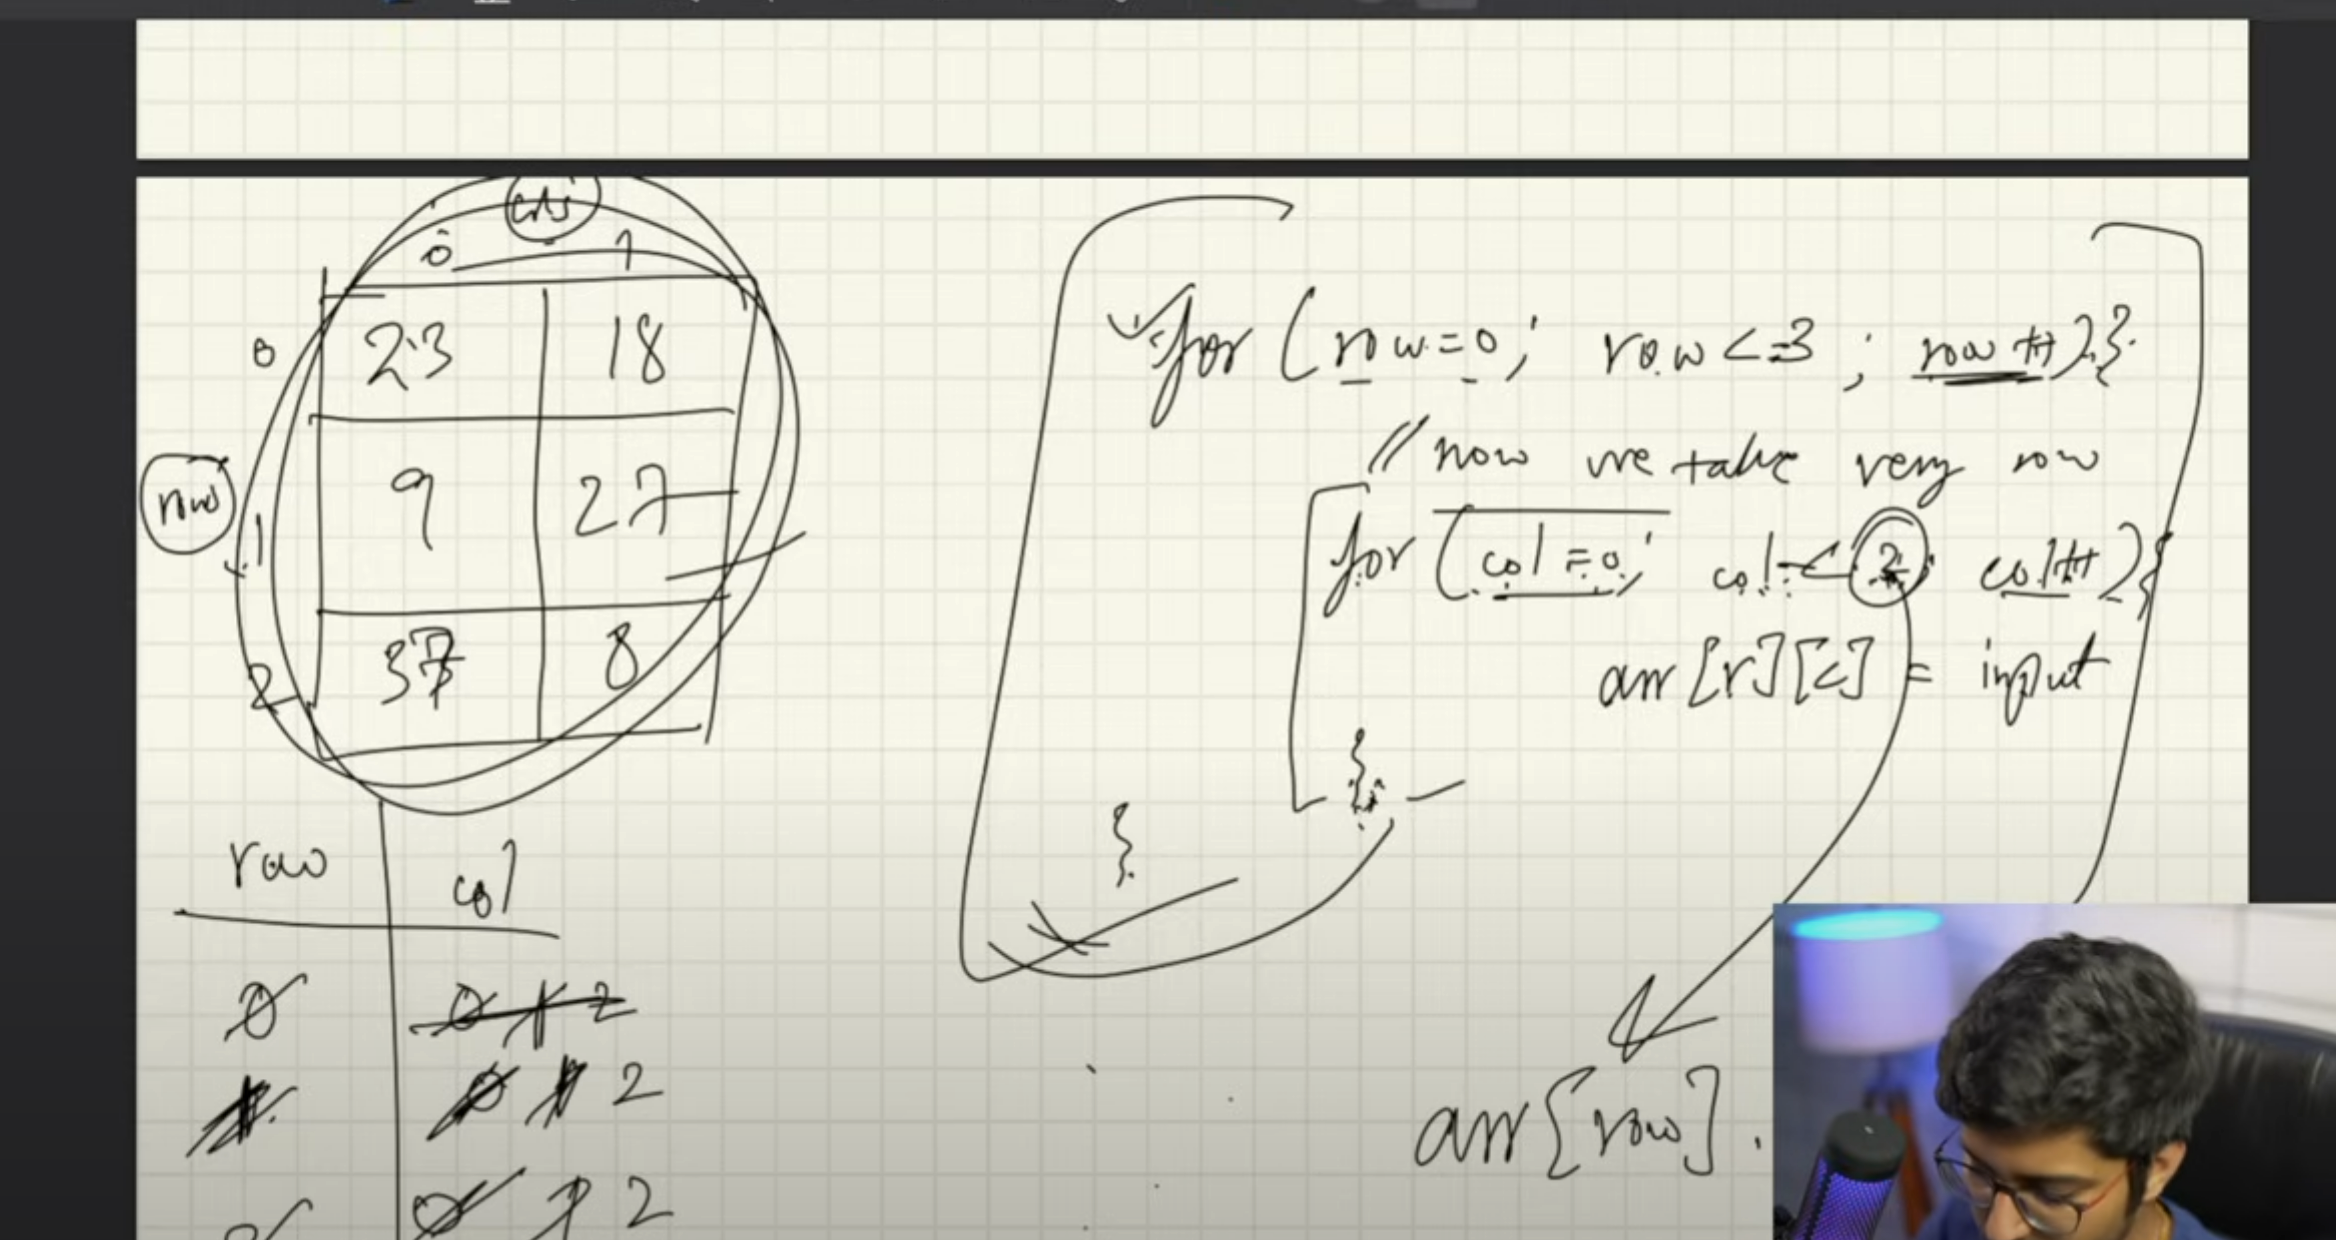 cols
0 1
0 23 18
rows
1 9 27
2 37 8
row col
0 0 1 2
1 0 1 2
2 0 1 2
for (row=0; row<=3; row++){
// now we take very row
for (col=0; col<2; col++){
arr[r][c] = input
}
}
arr[row].